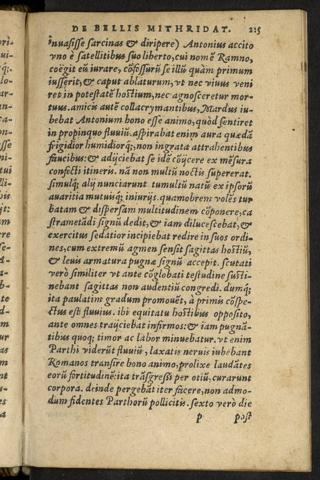 DE BELLIS MITHRIDAT. 225
inuasisse sarcinas & diripere) Antonius accito
vno è satellitibus suo liberto, cui nomē Ramno,
coëgit eū iurare, cōfossurū se illū quàm primum
iusserit, & caput ablaturum, vt nec viuus veni
ret in potestatē hostium, nec agnosceretur mor-
tuus. amicis autē collacrymantibus, Mardus iu-
bebat Antonium bono esse animo, quòd sentiret
in propinquo fluuiū. aspirabat enim aura quædā
frigidior humidiorq;, non ingrata attrahentibus
faucibus: & adijciebat se idē cōijcere ex mēsura
confecti itineris. nā non multū noctis supererat.
simulq; alij nunciarunt tumultū natū ex ipsorū
auaritia mutuisq; iniurijs. quamobrem volēs tur
batam & dispersam multitudinem cōponere, ca
strametādi signū dedit, & iam dilucescebat, &
exercitus sedatior incipiebat redire in suos ordi-
nes, cum extremū agmen sensit sagittas hostiū,
& leuis armatura pugnæ signū accepit. scutati
verò similiter vt ante cōglobati testudine susti-
nebant sagittas non audentiū congredi. dumq;
ita paulatim gradum promouēt, à primis cōspe-
ctus est fluuius. ibi equitatu hostibus opposito,
ante omnes traijciebat infirmos: & iam pugnā-
tibus quoq; timor ac labor minuebatur. vt enim
Parthi viderūt fluuiū, laxatis neruis iubebant
Romanos transire bono animo, prolixe laudātes
eorū fortitudinē: ita trāsgressi per otiū, curarunt
corpora. deinde pergebāt iter facere, non admo-
dum fidentes Parthorū pollicitis. sexto verò die
p post